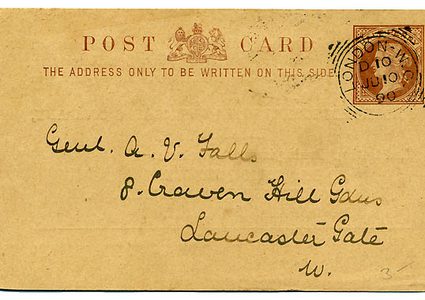 POST CARD
THE ADDRESS ONLY TO BE WRITTEN ON THIS SIDE
LONDON·W.C
D 10
JU 10
90
Genl. A. V. Falls
8. Craven Hill Gdns
Lancaster Gate
W.
3-